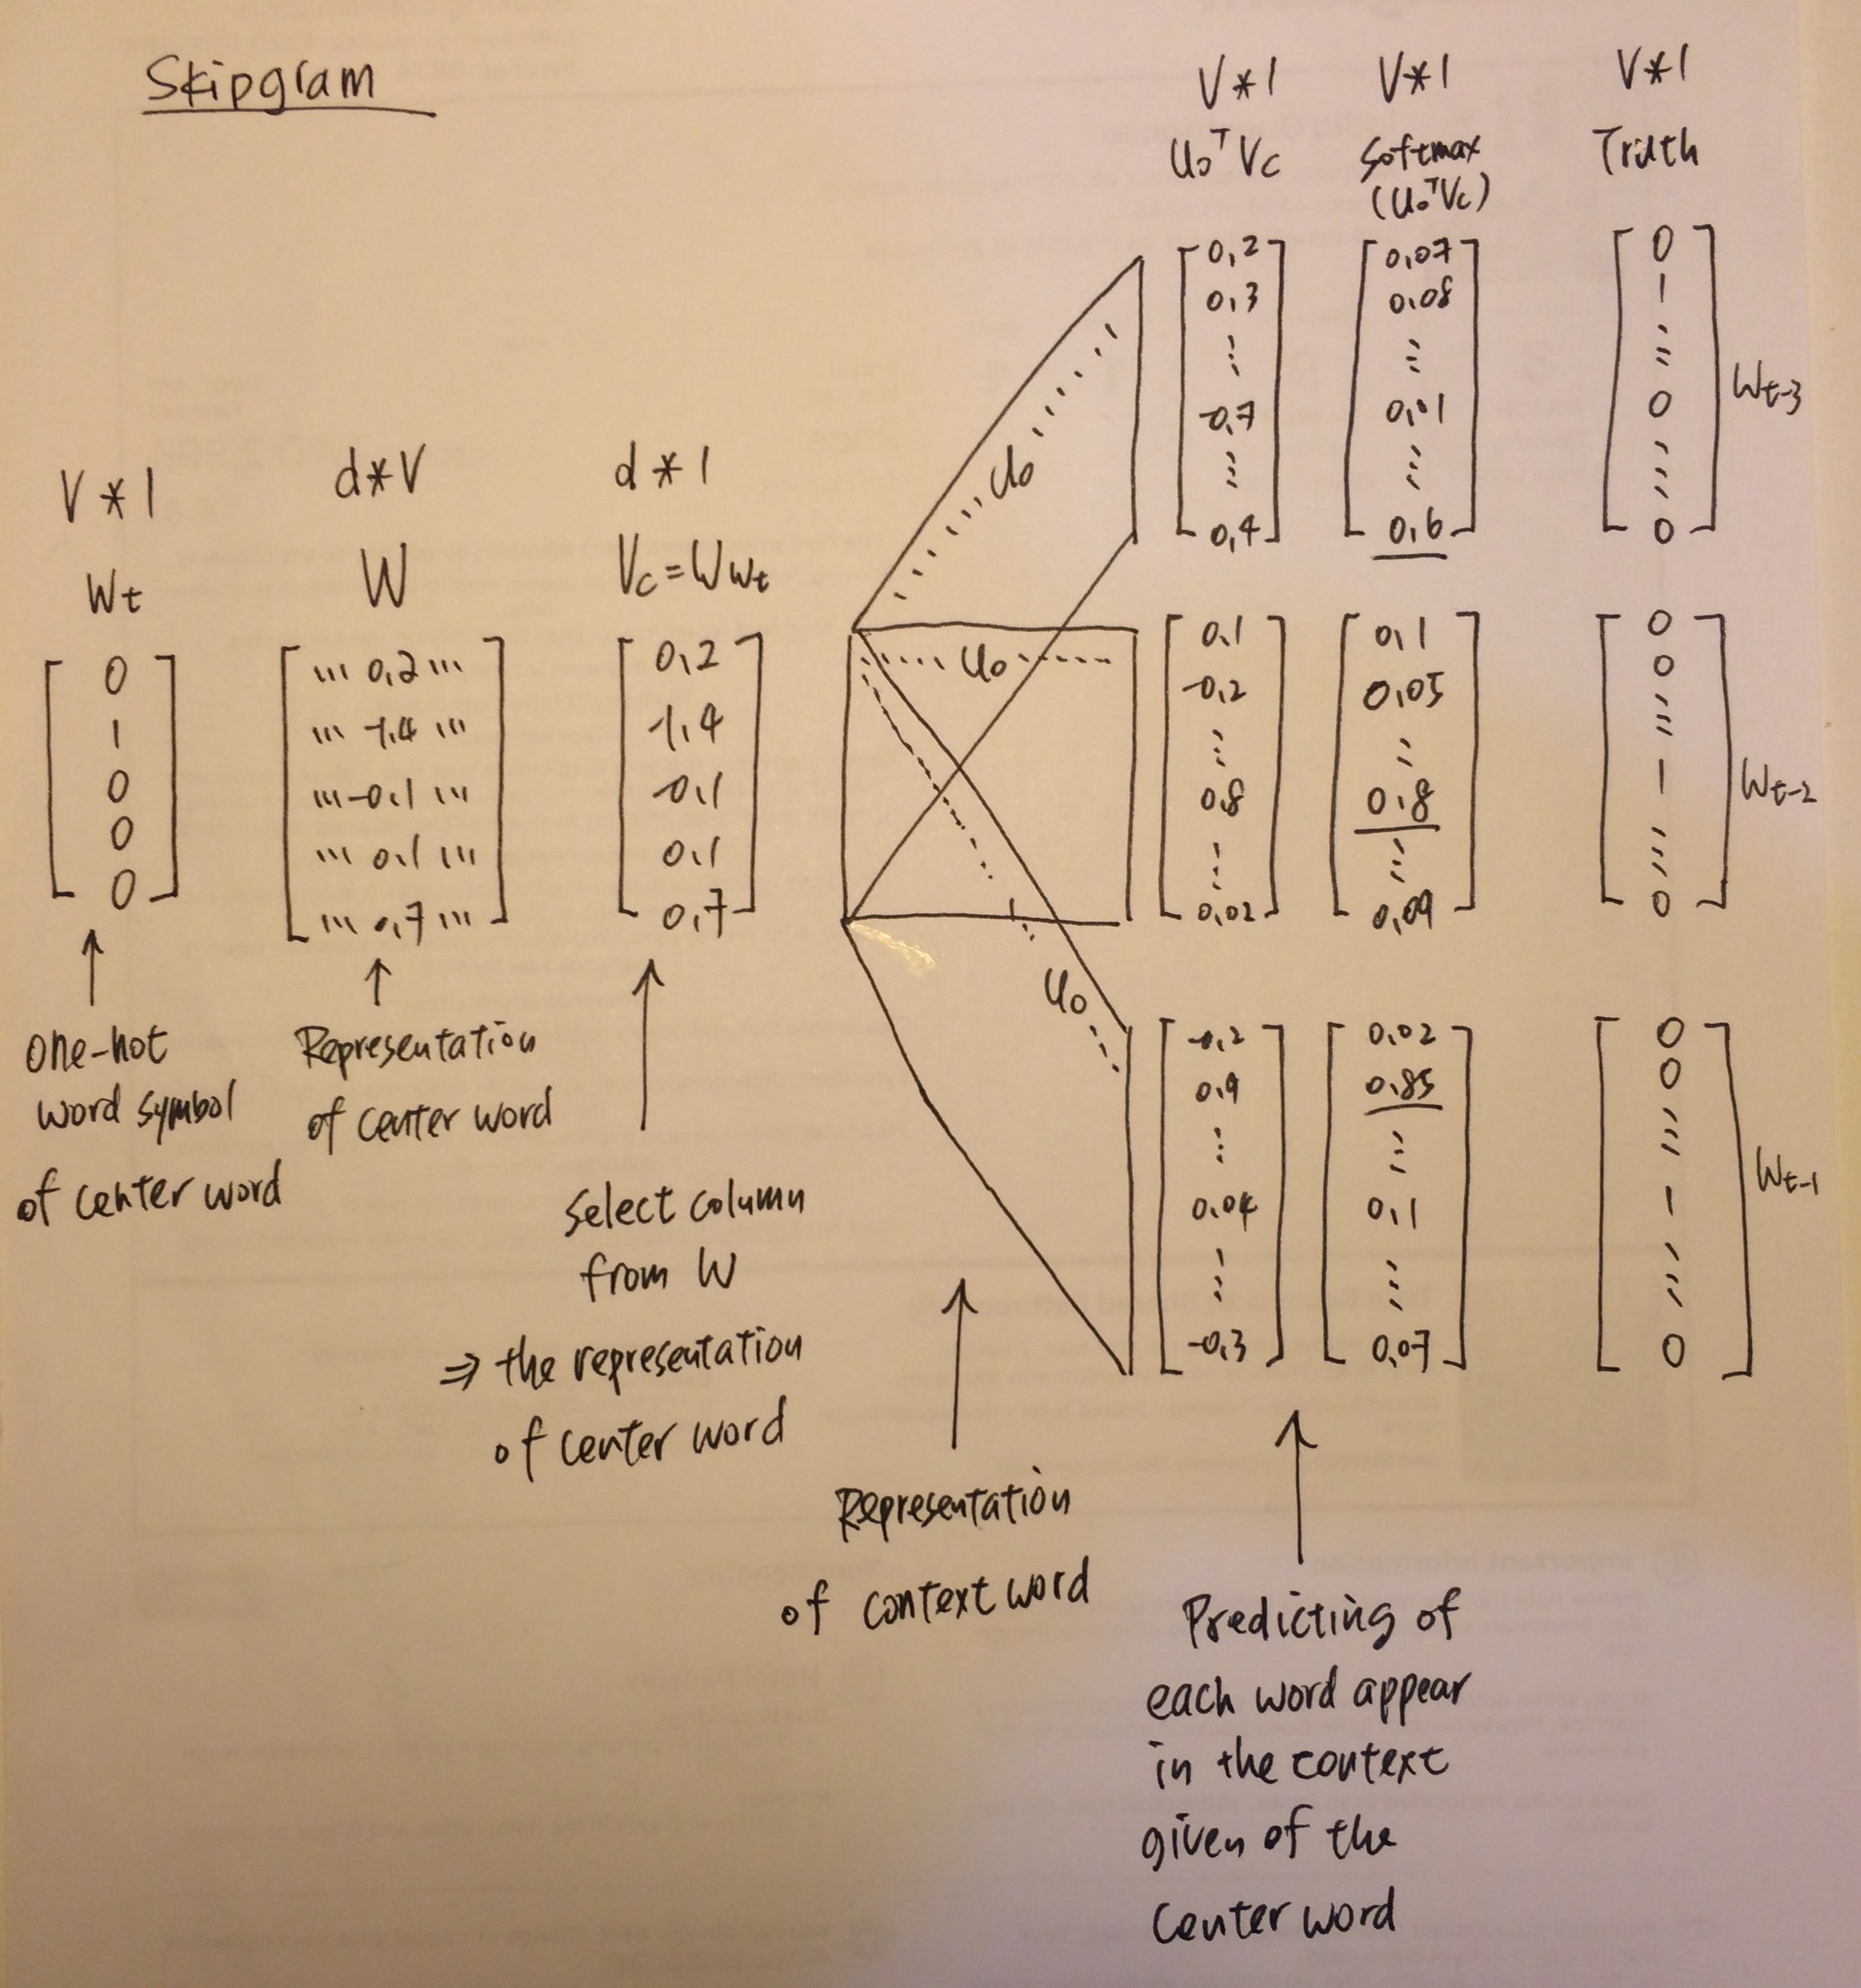 Skipgram
V*1
Wt
[0
1
0
0
0]
one-hot
word symbol
of center word
d*V
W
[... 0.2 ...
... -1.4 ...
... -0.1 ...
... 0.1 ...
... 0.7 ...]
Representation
of center word
d*1
Vc=Wwt
[0.2
-1.4
-0.1
0.1
0.7]
select column
from W
⇒ the representation
of center word
uo
uo
uo
Representation
of context word
V*1
uoᵀVc
[0.2
0.3
...
-0.7
...
0.4]
[0.1
-0.2
...
0.8
...
0.02]
[-0.2
0.9
...
0.04
...
-0.3]
V*1
Softmax
(uoᵀVc)
[0.07
0.08
...
0.01
...
0.6]
[0.1
0.05
...
0.8
...
0.09]
[0.02
0.85
...
0.1
...
0.07]
Predicting of
each word appear
in the context
given of the
center word
V*1
Truth
[0
1
...
0
...
0]
Wt-3
[0
0
...
1
...
0]
Wt-2
[0
0
...
1
...
0]
Wt-1